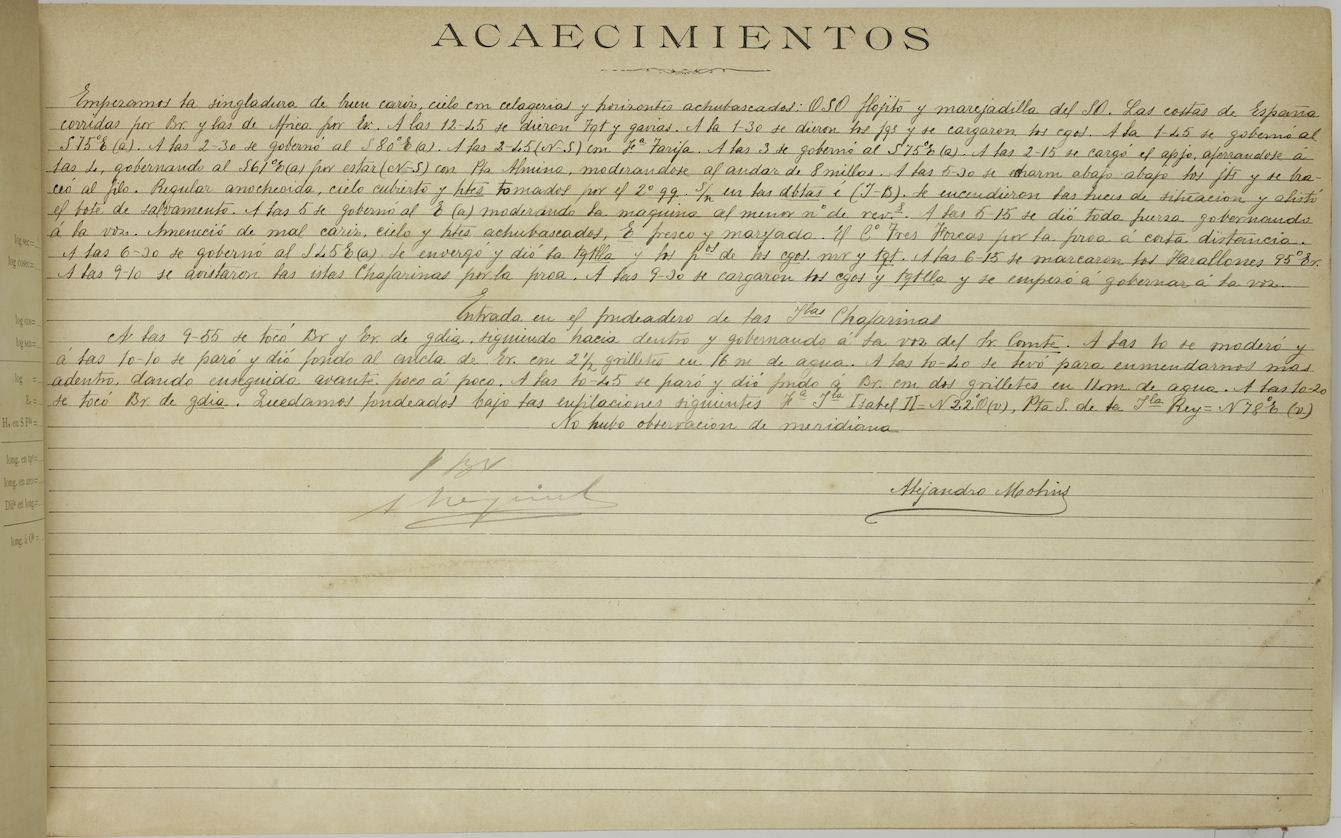 ACAECIMIENTOS
Empezamos la singladura de buen cariz, cielo con celagerias y horizontes achubascados: OSO flojito y marejadilla del SO. Las costas de España
corridas por Br. y las de Africa por Er. A las 12-45 se dieron Tgt y gavias. A la 1-30 se dieron los fgs y se cargaron los cgos. A la 1-45 se gobernó al
S75°E(a). A las 2-30 se gobernó al S80°E(a). A las 2-45 (N-S) con Fª Tarifa. A las 3 se gobernó al S75°E(a). A las 2-15 se cargó el apjo, aforrandose á
las 4, gobernando al S61°E(a) por estar (N-S) con Pta Almina, moderandose al andar de 8 millas. A las 5-30 se abajo abajo los y se bra-
ceó al filo. Regular anochecida, cielo cubierto y htes tomados por el 2º qq. S/n en las dbtas é (T-B). Se encendieron las luces de situacion y alistó
el bote de salvamento. A las 5 se gobernó al E (a) moderando la maquina al menor nº de rev.s. A las 5-15 se dió toda fuerza gobernando
á la voz. Ameneció de mal cariz, cielo y htes achubascados, E fresco y maryado. El Cº Tres Forcas por la proa á corta distancia.
A las 6-30 se gobernó al S45E(a). Se envergó y dió la tgtlla y los pos de los cgos, mr y tgt. A las 6-15 se marcaron los Farallones 95° Er.
A las 9-10 se avistaron las islas Chafarinas por la proa. A las 9-30 se cargaron los cgos y tgtlla y se empezó á gobernar á la voz.
Entrada en el fondeadero de las Islas Chafarinas
A las 9-55 se tocó Br y Er. de gdia, siguiendo hacia dentro y gobernando á la voz del Sr Comte. A las 10 se moderó y
á las 10-10 se paró y dió fondo al ancla de Er. con 2½ grilletes en 16 m de agua. A las 10-20 se levó para enmendarnos mas
adentro, dando enseguida avante poco á poco. A las 10-45 se paró y dió fondo á Br. con dos grilletes en 11m de agua. A las 10-50
se tocó Br. de gdia. Quedamos fondeados bajo las enfilaciones siguientes Fª Isla Isabel II= N22°O(v), Pta S. de la Isla Rey= N78°E (v)
No hubo observacion de meridiana
Alejandro Molins
log sec=
log cosec=
log cos=
log sen=
log =
E. =
long. en tpº=
long. en arco=
Difª en long=
long. á 0h=